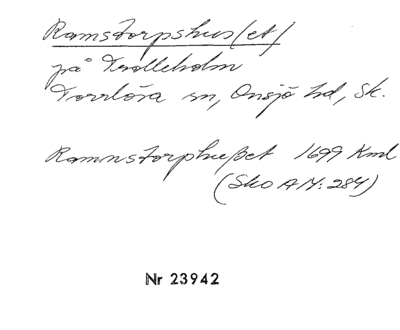 Ramstorpshus(et)
på Trolleholm
Torrlösa sn, Onsjö hd, Sk.
Ramnstorphußet 1699 Kml
(Sko AM: 284)
Nr 23942